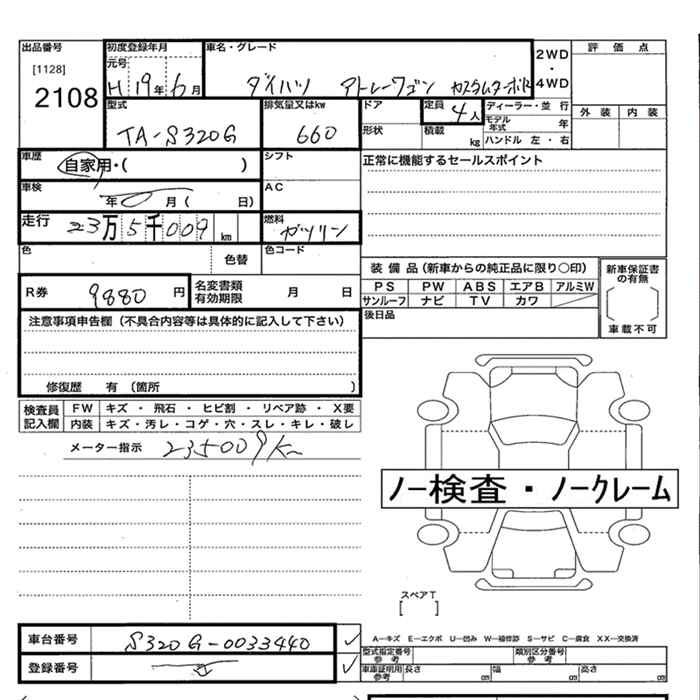 出品番号 [1128] 2108
初度登録年月 元号 H 19年 6月
車名・グレード ダイハツ アトレーワゴン カスタムターボR
2WD ・ 4WD
評価点
外装 内装
型式 TA-S320G
排気量又はkw 660
ドア
形状
定員 4人
積載 kg
ディーラー・並行
モデル年式 年
ハンドル 左・右
車歴 自家用・( )
シフト
正常に機能するセールスポイント
車検 年 月( 日)
AC
走行 23万5千009 km
燃料 ガソリン
色 色替
色コード
装備品(新車からの純正品に限り○印)
PS PW ABS エアB アルミW
サンルーフ ナビ TV カワ
新車保証書の有無
車載不可
R券 9880円
名変書類有効期限 月 日
後日品
注意事項申告欄(不具合内容等は具体的に記入して下さい)
修復歴 有(箇所 )
検査員記入欄
FW キズ・飛石・ヒビ割・リペア跡・X要
内装 キズ・汚レ・コゲ・穴・スレ・キレ・破レ
メーター指示 235009K
ノー検査・ノークレーム
スペアT
[ ]
車台番号 S320G-0033440
登録番号
A―キズ E―エクボ U―凹み W―補修跡 S―サビ C―腐食 XX―交換済
型式指定番号 参考
類別区分番号 参考
車庫証明用参考 長さ cm 幅 cm 高さ cm